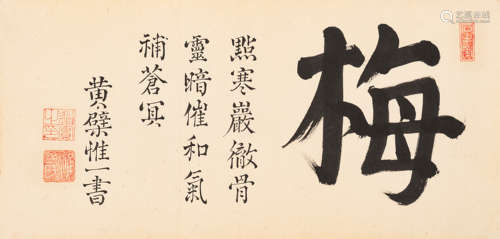 梅
點寒巖徹骨
靈暗催和氣
補蒼冥
黄檗惟一書